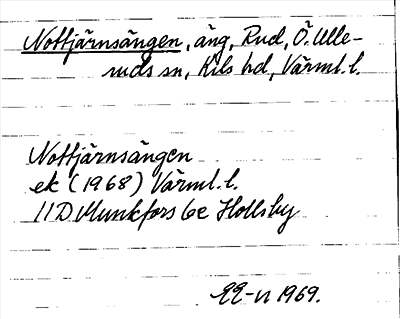 Nottjärnsängen, äng, Rud, Ö. Ulle-
ruds sn, Kils hd, Värml. l.
Nottjärnsängen
ek (1968) Värml. l.
11D Munkfors 6e Hollsby
EE-n 1969.